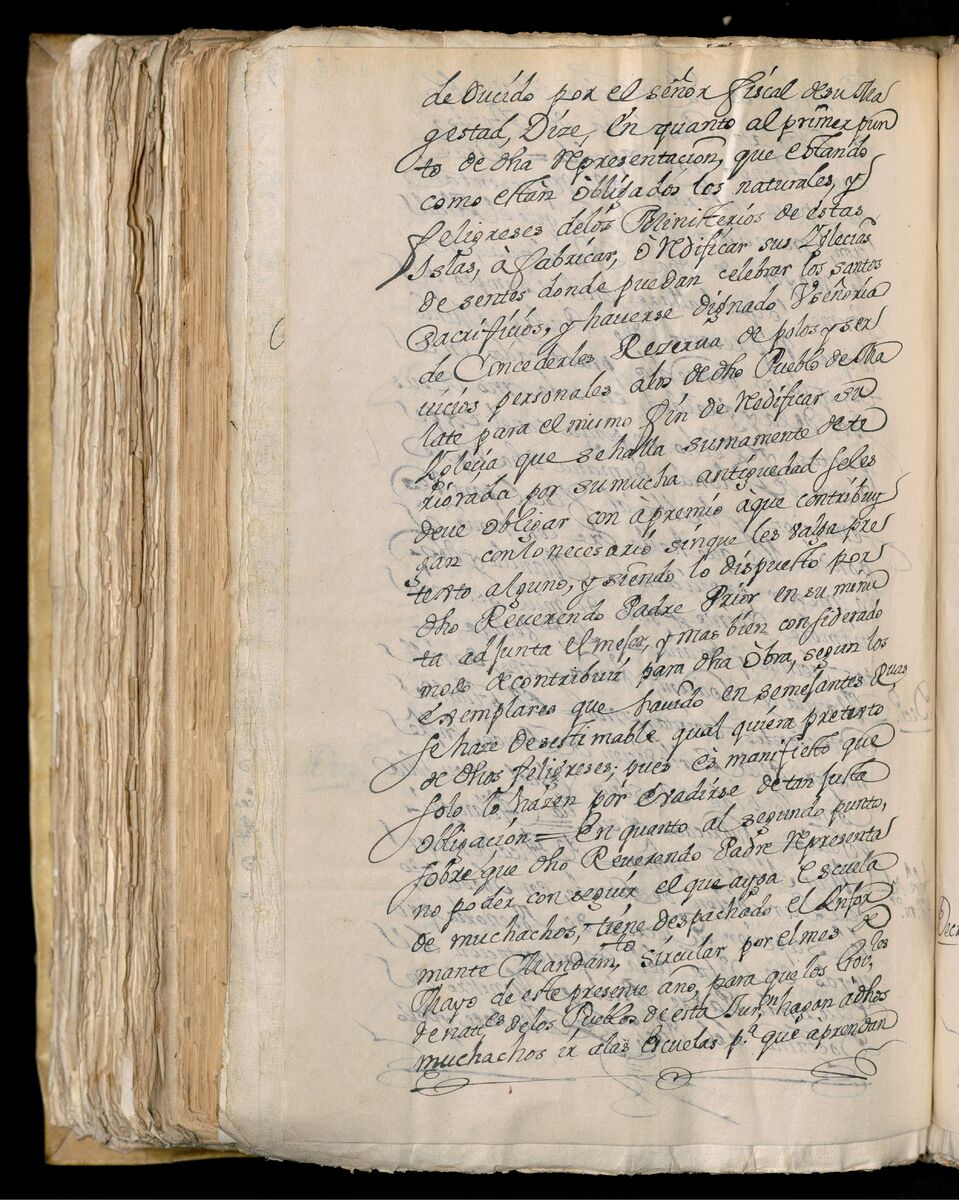 deducido por el señor fiscal de su Ma
gestad, Dize, En quanto al primer pun
to de dha Representacion, que estando
como estàn òbligados los naturales, y
feligreses delos Ministerios de estas
Islas, à fabricar, ò Redificar sus Yglecias
desentes donde puedan celebrar los santos
Sacrificios, y haverse dignado Vseñoria
de Concederles Rezerva de polos y ser
uicios personales alos de dho Pueblo de Ma
late para el mismo fin de Redificar su
Yglecia que sehalla sumamente dete
riorada por su mucha antiguedad seles
deve obligar con àpremio àque contribuy
gan conlo necesario sinque les valga pre
texto alguno, y siendo lo dispuesto por
dho Reverendo Padre Prior en su minu
ta adjunta el mejor, y mas bien considerado
modo de contribuir para dha òbra, segun los
exemplares que havido en semejantes
se haze desestimable qual quiera pretexto
de dhos feligreses; pues ès manifiesto que
solo lo hazen por Evadirse detan Justa
Obligacion = En quanto al segundo punto,
sobre que dho Reverendo Padre Representa
no poder conseguir el que ayga Escuela
de muchachos, tiene despachado el Ynfor
mante Mandam.to sircular por el mes de
Mayo de este presente año, para que los Gov.los
de nat.es delos Pueblos de esta Jur.on hagan à dhos
muchachos ir alas Escuelas p.a que àprendan
Decr